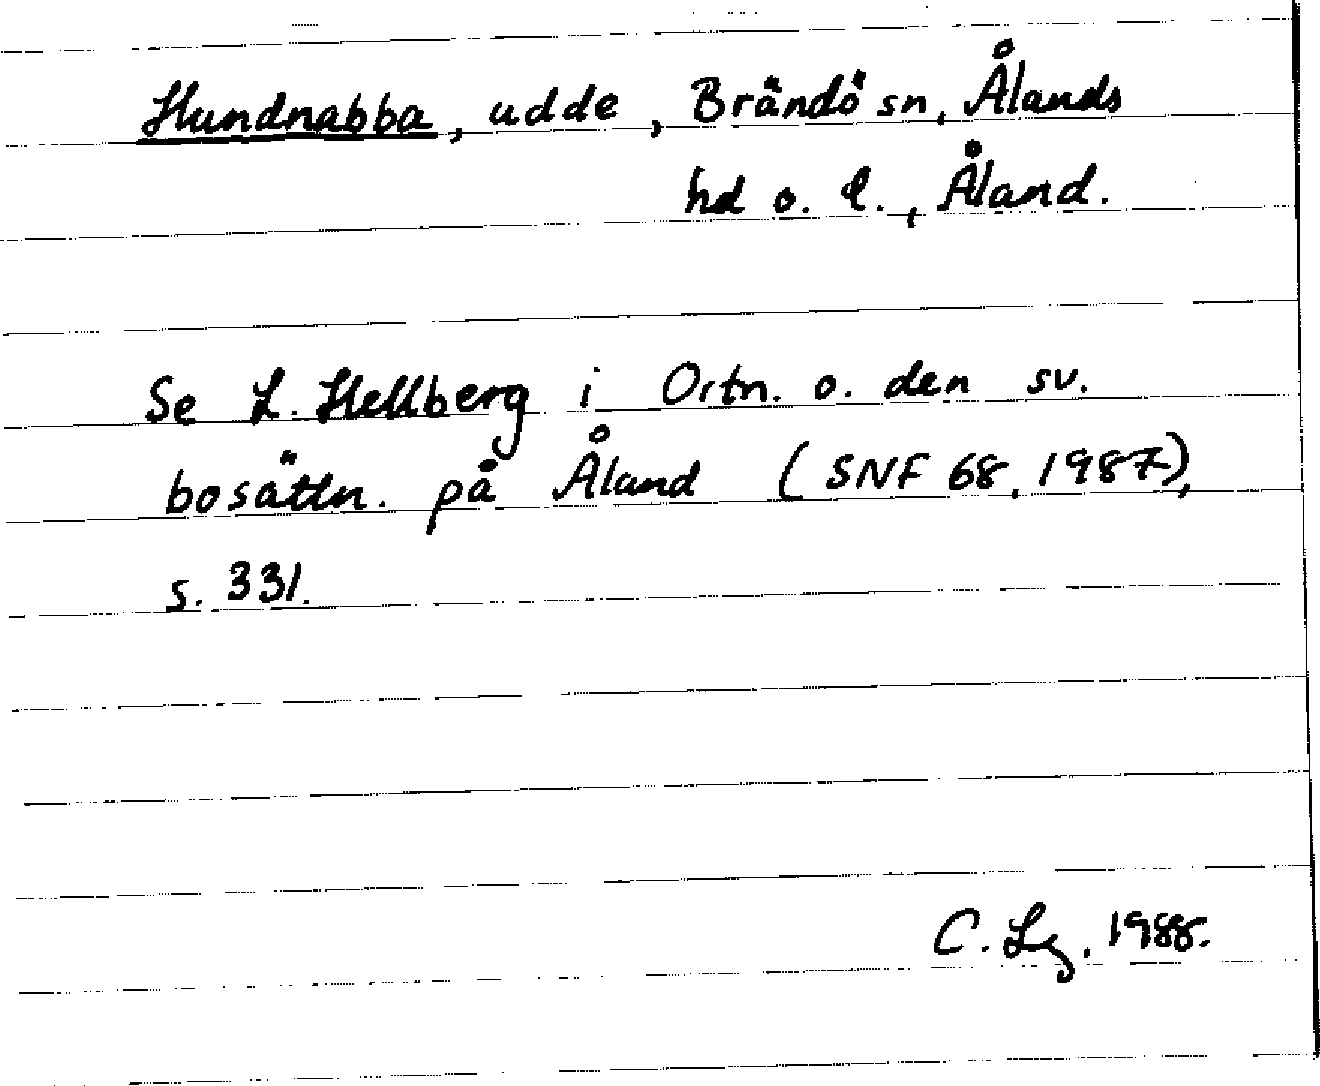 Hundnabba, udde, Brändö sn, Ålands
hd o. l., Åland.
Se L. Hellberg i Ortn. o. den sv.
bosättn. på Åland (SNF 68, 1987),
s. 331.
C. Lg. 1988.